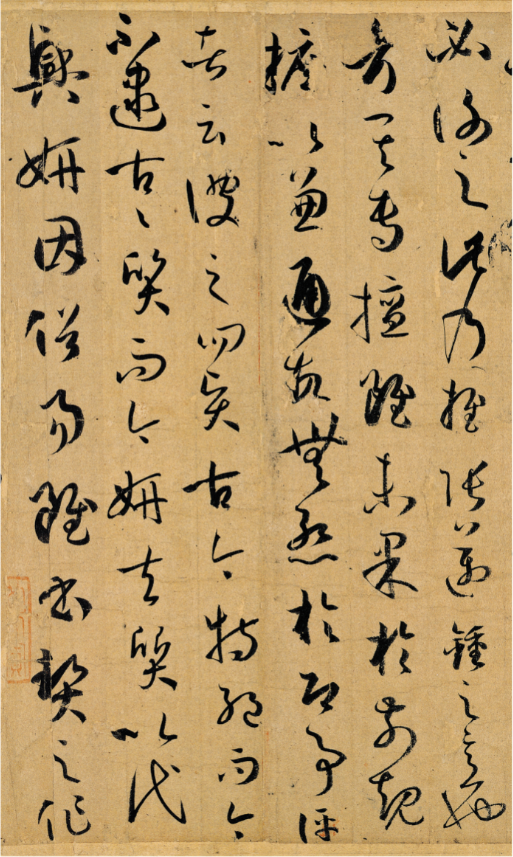 必謝之此乃推張邁鍾之意也
考其專擅雖未果於前規
摭以兼通故無慙於即事評
者云彼之四賢古今特絕而今
不逮古〻質而今妍夫質以代
興妍因俗易雖書契之作